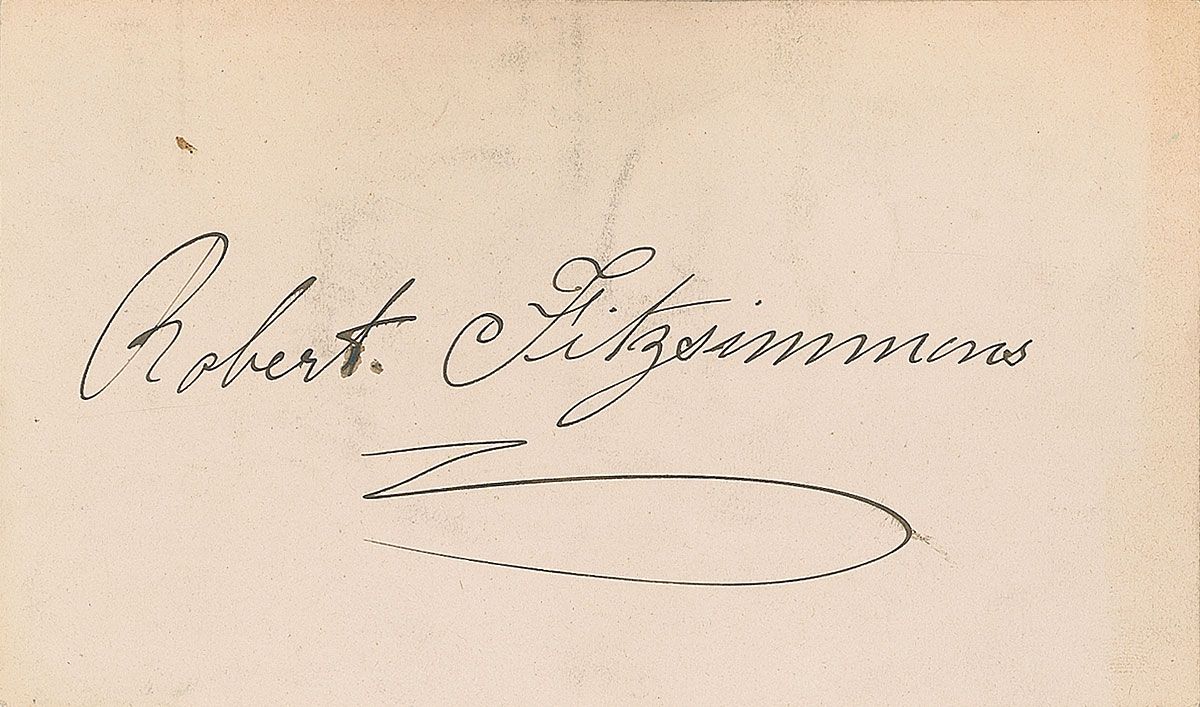 Robert. Fitzsimmons